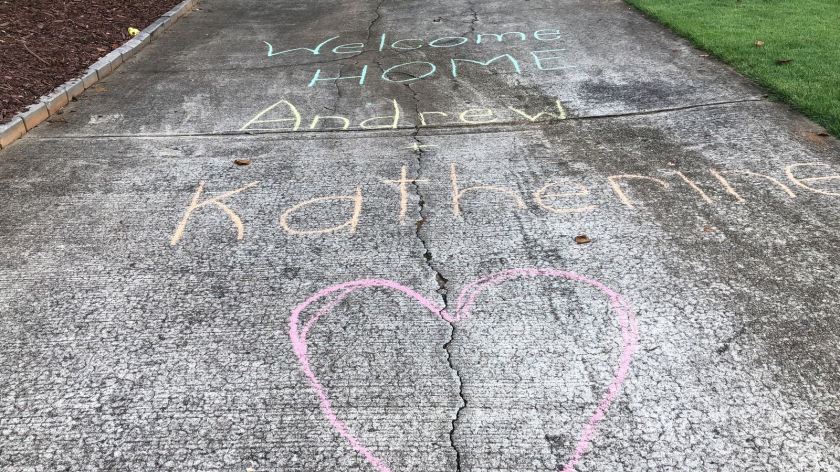 Welcome
HOME
Andrew
+
Katherine